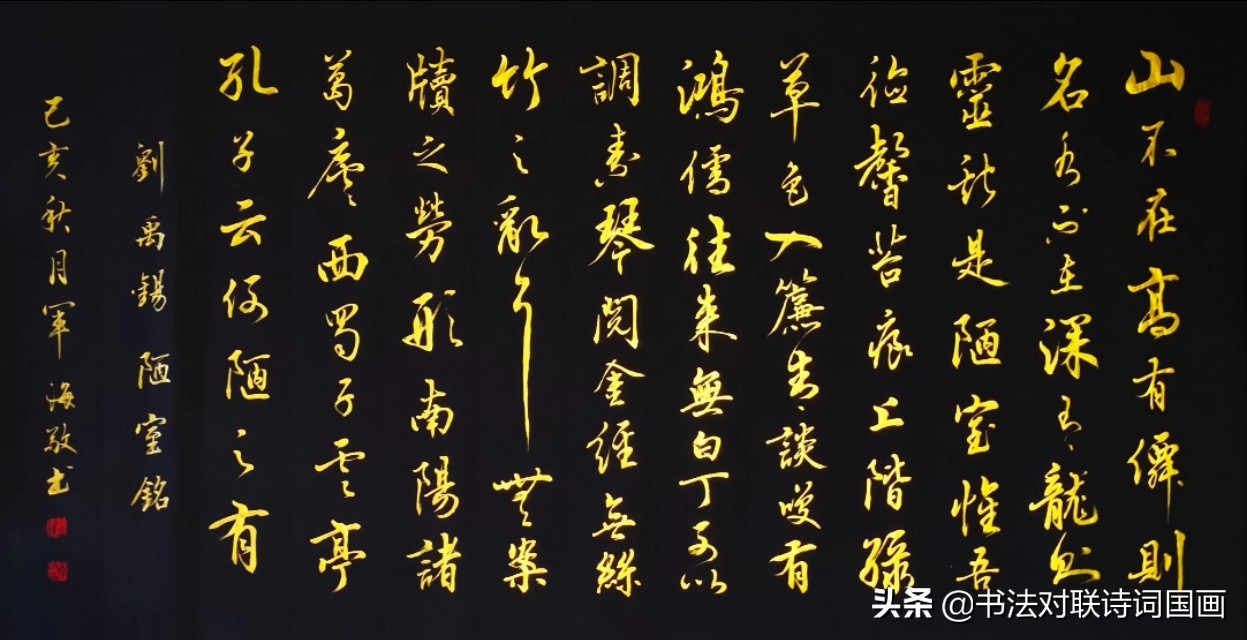 山不在高有僊則
名水不在深有龍則
靈斯是陋室惟吾
德馨苔痕上階綠
草色入簾青談咲有
鴻儒往来無白丁可以
調素琴閱金經無絲
竹之亂耳無案
牘之勞形南陽諸
葛廬西蜀子雲亭
孔子云何陋之有
劉禹錫 陋室銘
己亥秋月軍海敬书
头条 @书法对联诗词国画